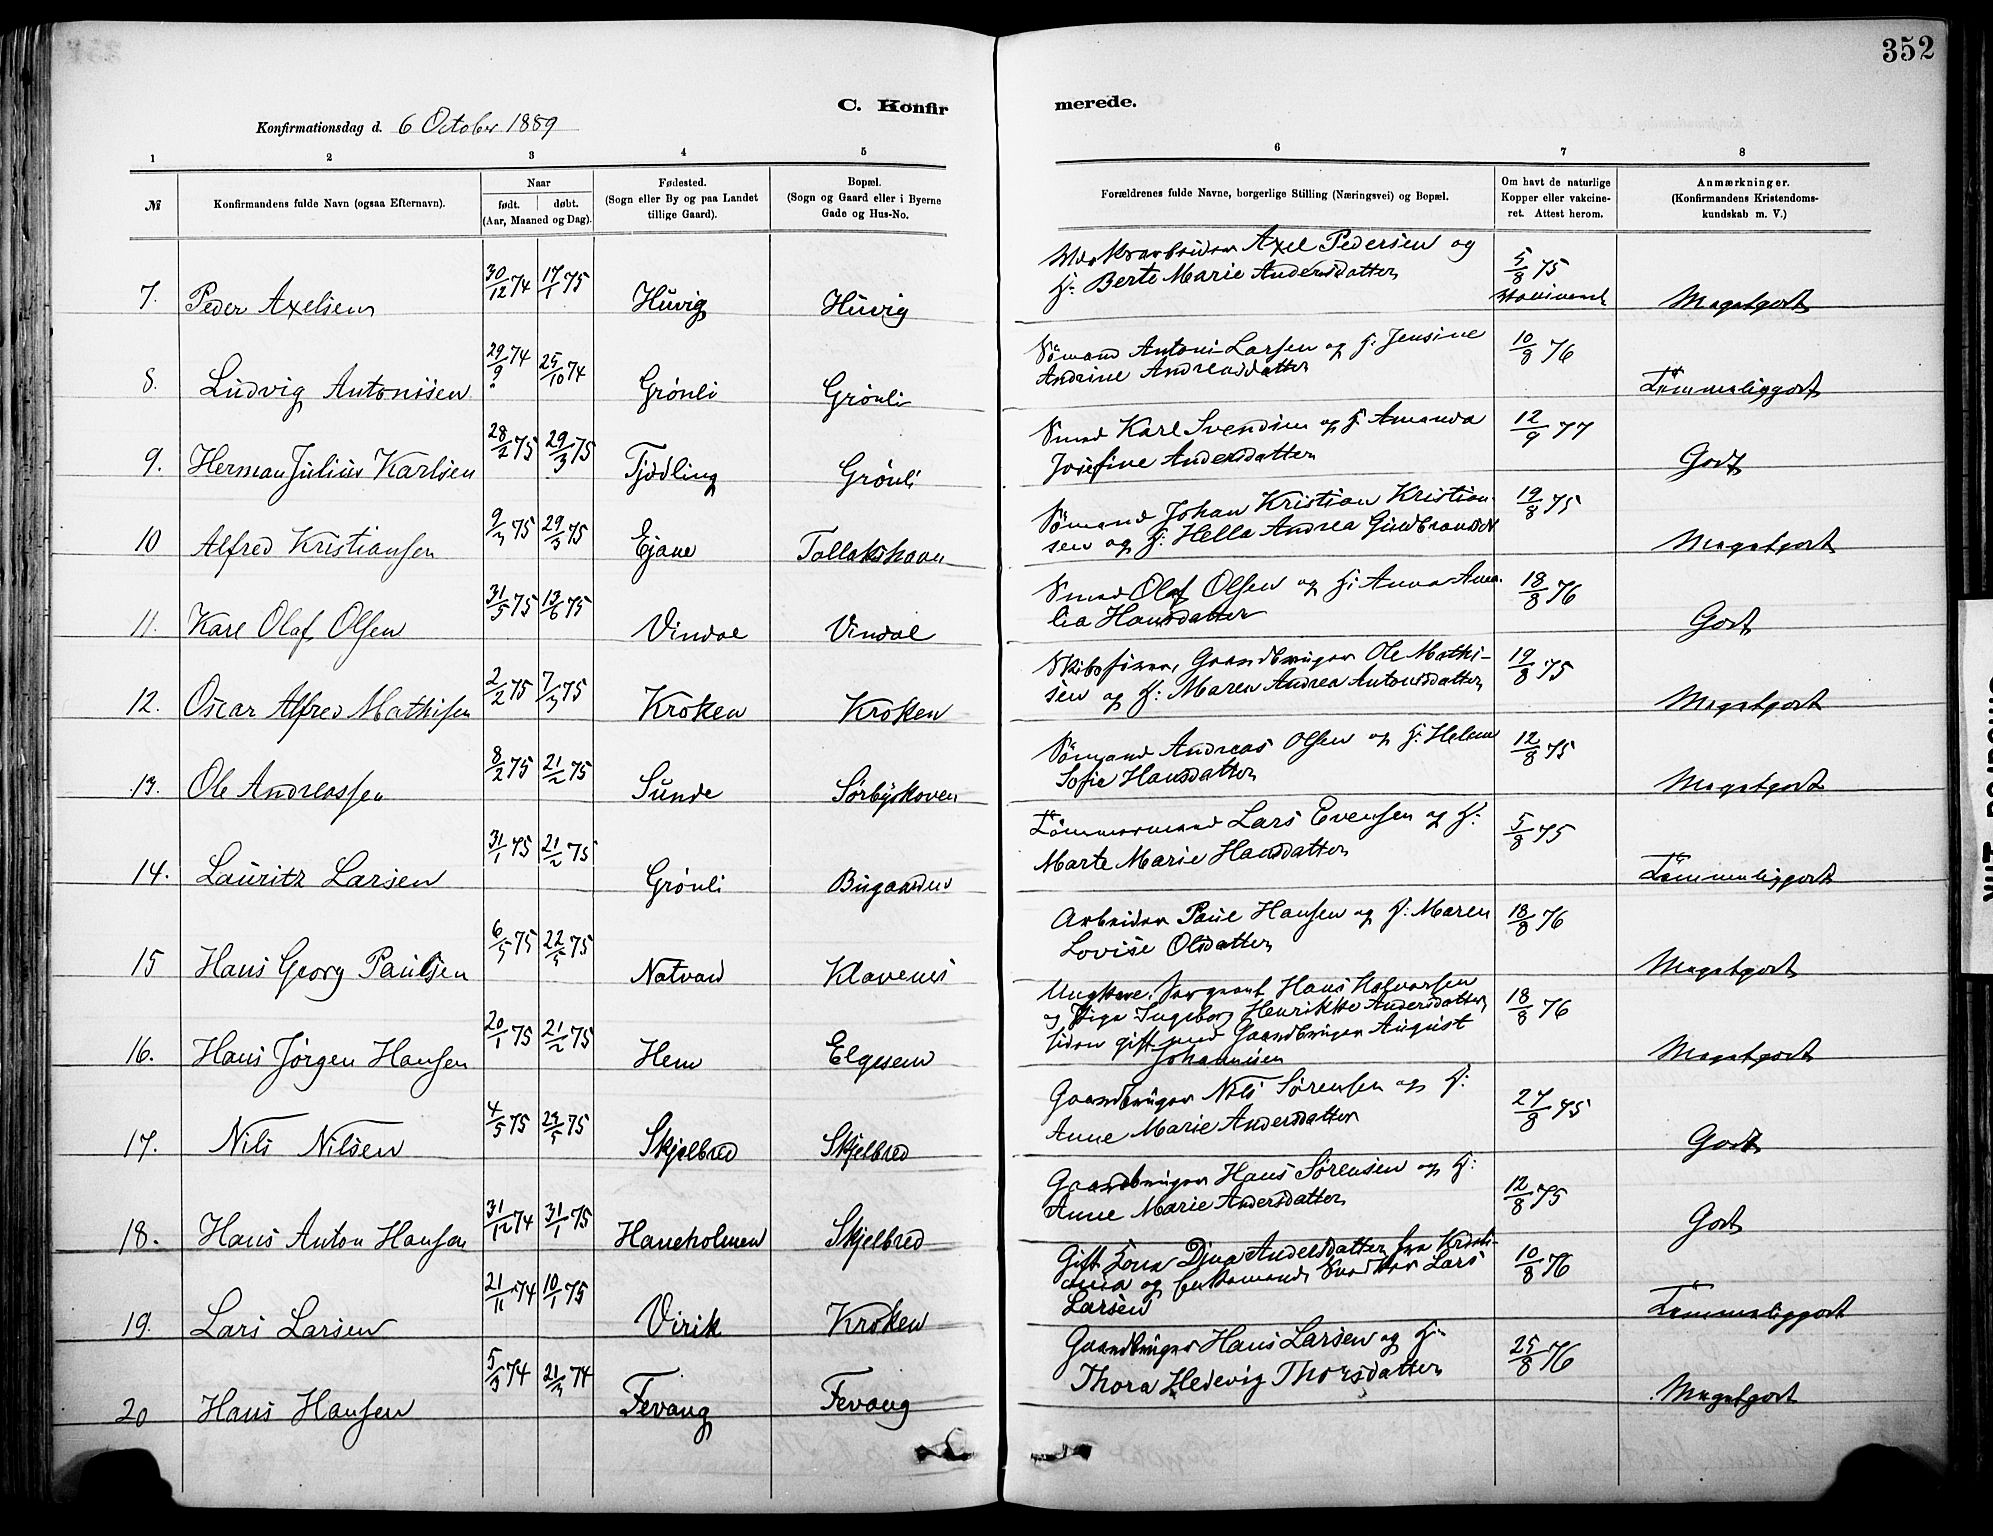 352
C. Konfirmerede.
Konfirmationsdag d. 6 October 1889
1 2 3 4 5 6 7 8
№
Konfirmandens fulde Navn (ogsaa Efternavn).
Naar
født. døbt.
(Aar, Maaned og Dag).
Fødested.
(Sogn eller By og paa Landet
tillige Gaard).
Bopæl.
(Sogn og Gaard eller i Byerne
Gade og Hus-No.
Forældrenes fulde Navne, borgerlige Stilling (Næringsvei) og Bopæl.
Om havt de naturlige
Kopper eller vakcine-
ret. Attest herom.
Anmærkninger.
(Konfirmandens Kristendoms-
kundskab m. V.)
7. Peder Axelsen 30/12 74 17/1 75 Huvig Huvig
Axel Pedersen og
H: Berte Marie Andersdatter
5/8 75
Megetgodt
8. Ludvig Antonisen 29/9 74 25/10 74 Grönli Grönli
Sömand Antoni Larsen og H: Jensine
Andrine Andreasdatter
10/8 76
Temmeliggodt
9. Herman Julius Karlsen 28/2 75 29/3 75 Tjödling Grönli
Smed Karl Svendsen og H: Amanda
Josefine Andersdatter
12/9 77
Godt
10 Alfred Kristiansen 9/3 75 29/3 75 Ejane Tollakshavn
Sömand Johan Kristian Kristian-
sen og H: Hella Andrea Gundbrandsd
19/8 75
Megetgodt
11. Karl Olaf Olsen 31/5 75 13/6 75 Vindal Vindal
Smed Olaf Olsen og H: Anna Ama-
lia Hansdatter
18/8 76
Godt
12. Oscar Alfred Mathisen 2/2 75 7/3 75 Kroken Kroken
Skibsförer, Gaardbruger Ole Mathi-
sen og H: Maren Andrea Antonsdatter
19/8 75
Megetgodt
13. Ole Andreassen 8/2 75 21/2 75 Sunde Sörbyskoven
Sömand Andreas Olsen og H: Helene
Sofie Hansdatter
12/8 75
Megetgodt
14. Lauritz Larsen 31/1 75 21/2 75 Grönli Bugaarden
Tömmermand Lars Evensen og H:
Marte Marie Hansdatter
5/8 75
Temmeliggodt
15 Hans Georg Paulsen 6/5 75 22/5 75 Natvad Klavenes
Arbeider Paul Hansen og H: Maren
Lovise Olsdatter
18/8 76
Megetgodt
16. Hans Jörgen Hansen 20/1 75 21/2 75 Hem Elgesem
Ungkarl, Sergeant Hans Halvorsen
og Pige Ingeborg Henrikke Andersdatter
siden gift med Gaardbruger August
Johannisen
18/8 76
Megetgodt
17. Nils Nilsen 4/5 75 24/5 75 Skjelbred Skjelbred
Gaardbruger Nils Sörensen og H:
Anne Marie Andersdatter
27/8 75
Godt
18. Hans Anton Hansen 31/12 74 31/1 75 Haneholmen Skjelbred
Gaardbruger Hans Sörensen og H:
Anne Marie Andersdatter
12/8 75
Godt
19. Lars Larsen 21/11 74 10/1 75 Virik Kroken
Gift Kone Dina Andersdatter fra Kristi-
ania og Enkemand Snedker Lars
Larsen
10/8 76
Temmeliggodt
20 Hans Hansen 5/3 74 21/3 74 Fevang Fevang
Gaardbruger Hans Larsen og H:
Thora Hedevig Thorsdatter
25/8 76
Megetgodt